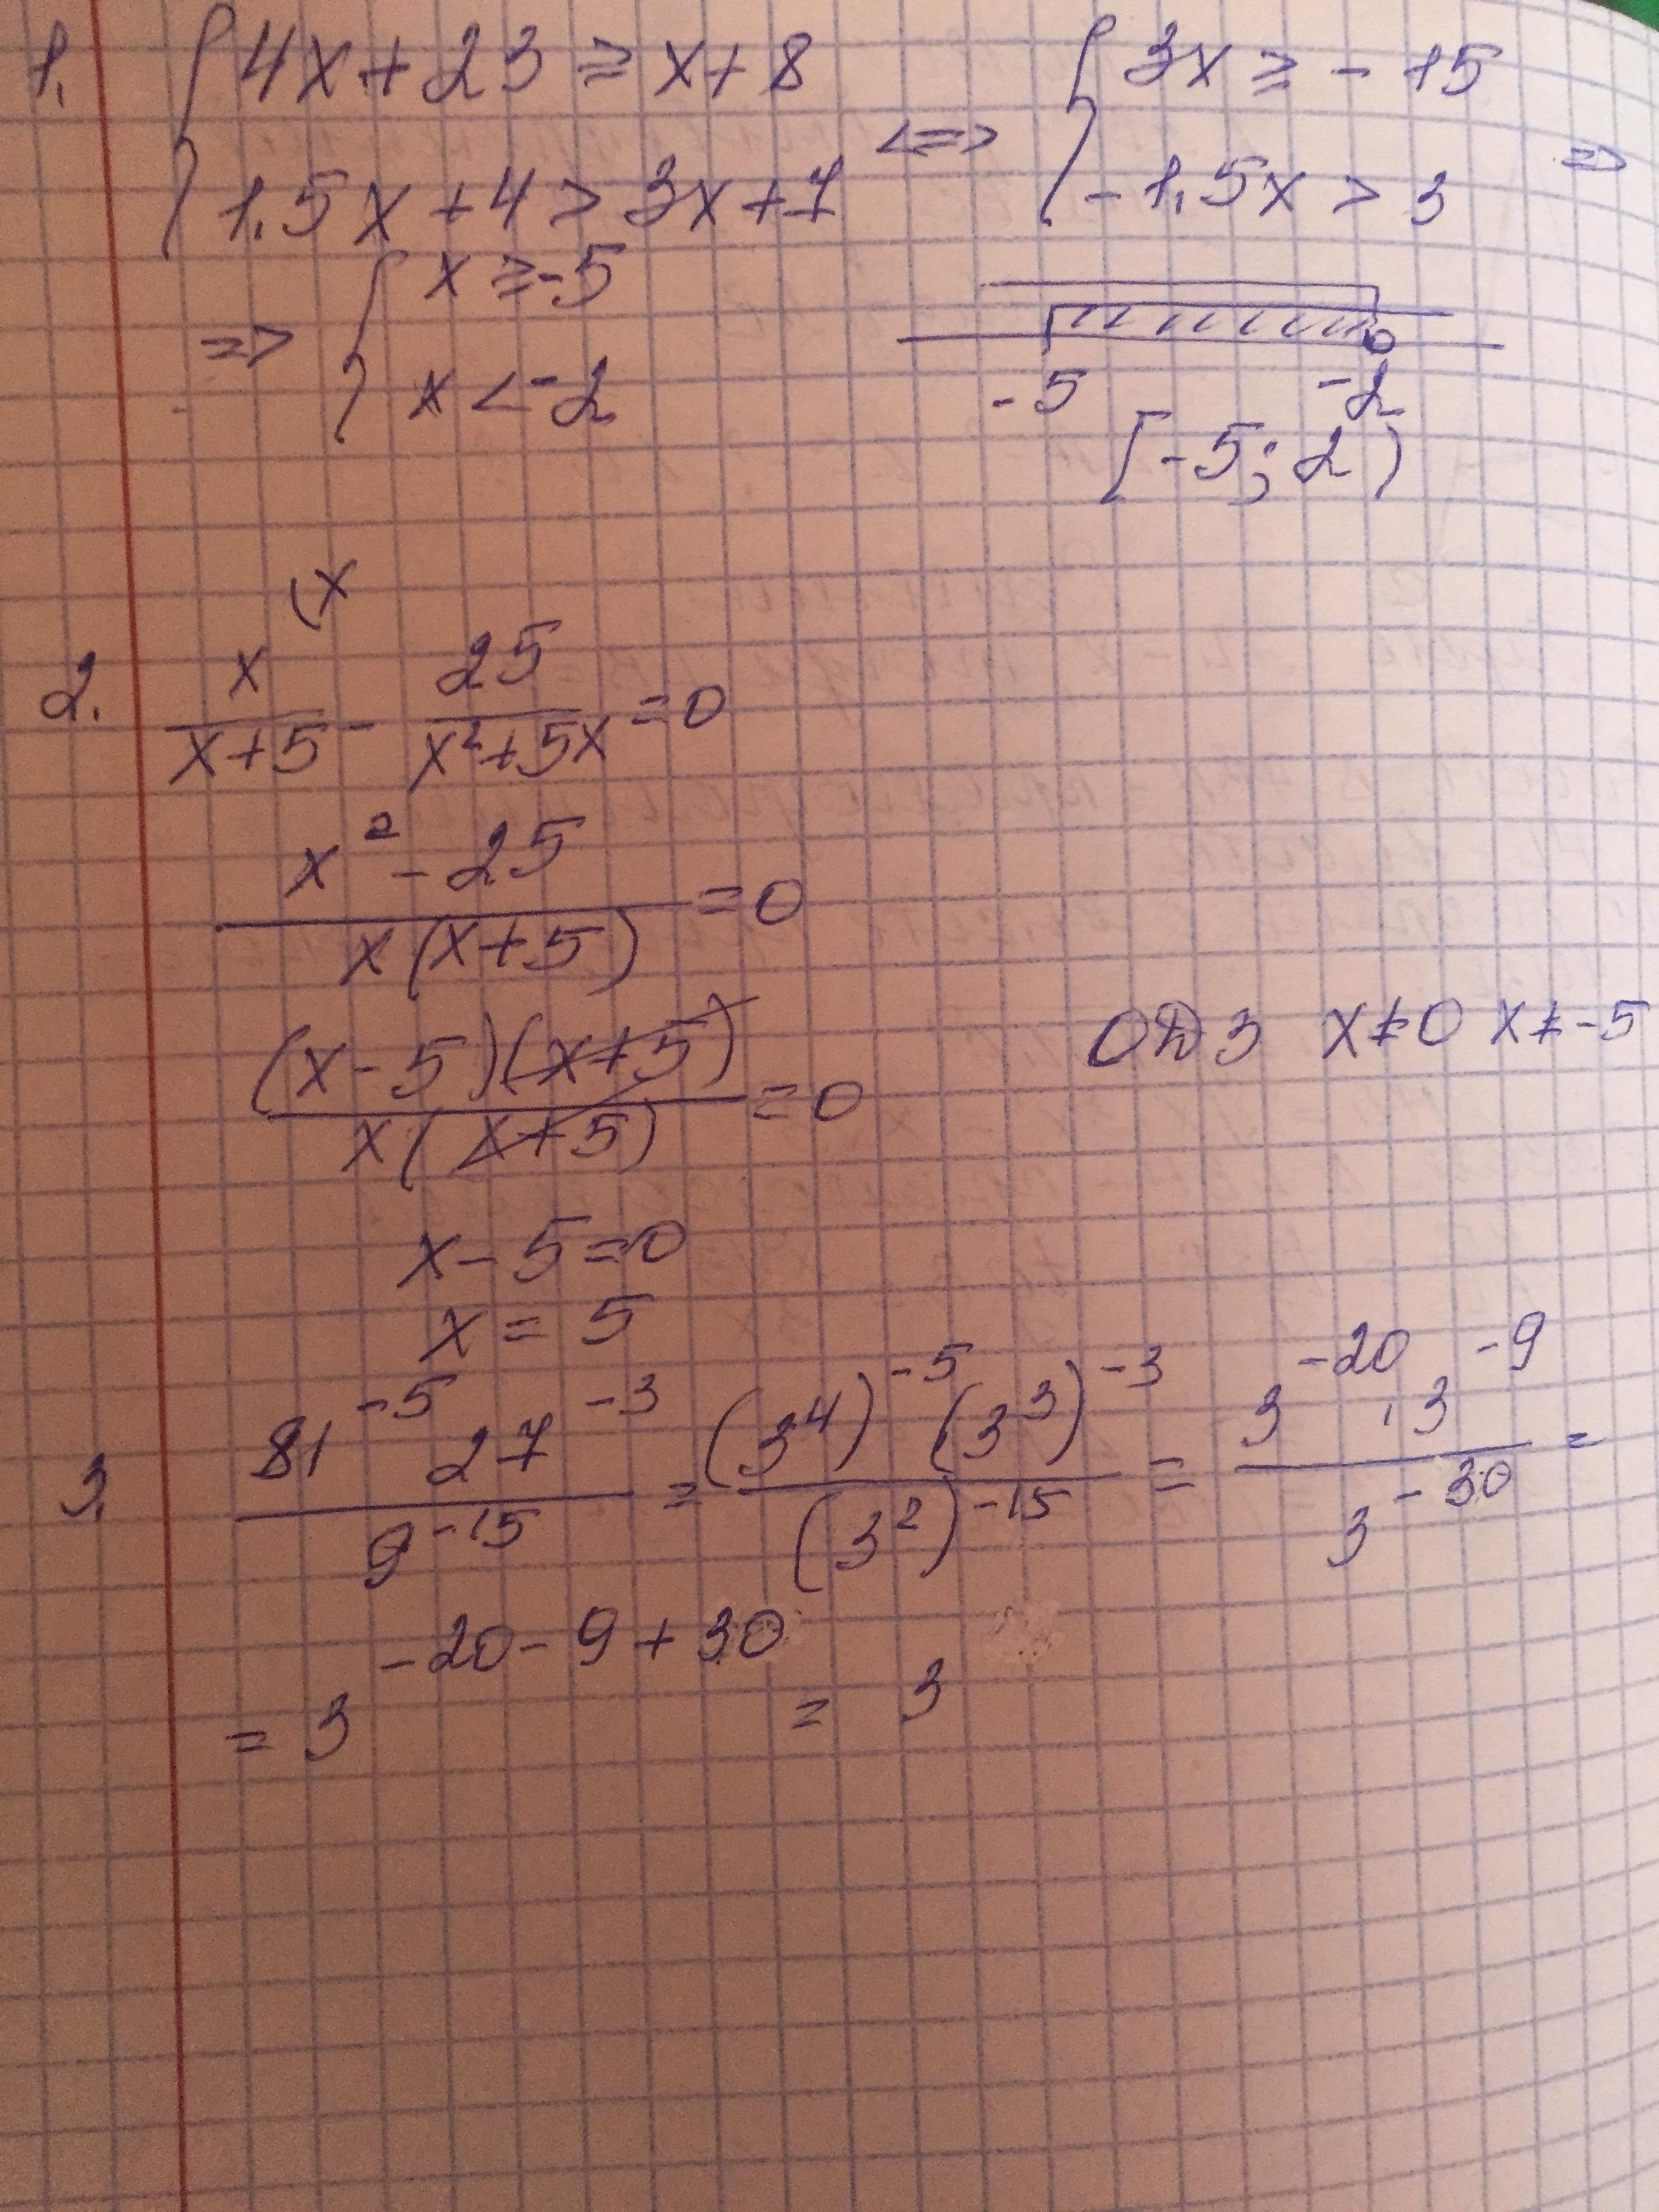 1. { 4x + 23 ≥ x + 8 <=> { 3x ≥ - 15
1,5x + 4 > 3x + 7 - 1,5x > 3 =>
=> { x ≥ -5
x < -2
-5 -2
[-5; 2)
(x
2. x/(x+5) - 25/(x²+5x) = 0
(x² - 25)/(x(x+5)) = 0
((x-5)(x+5))/(x(x+5)) = 0 ОДЗ x≠0 x≠-5
x - 5 = 0
x = 5
3. (81^-5 27^-3)/(9^-15) = ((3^4)^-5 (3^3)^-3)/((3^2)^-15) = (3^-20 · 3^-9)/(3^-30) =
= 3^(-20-9+30) = 3